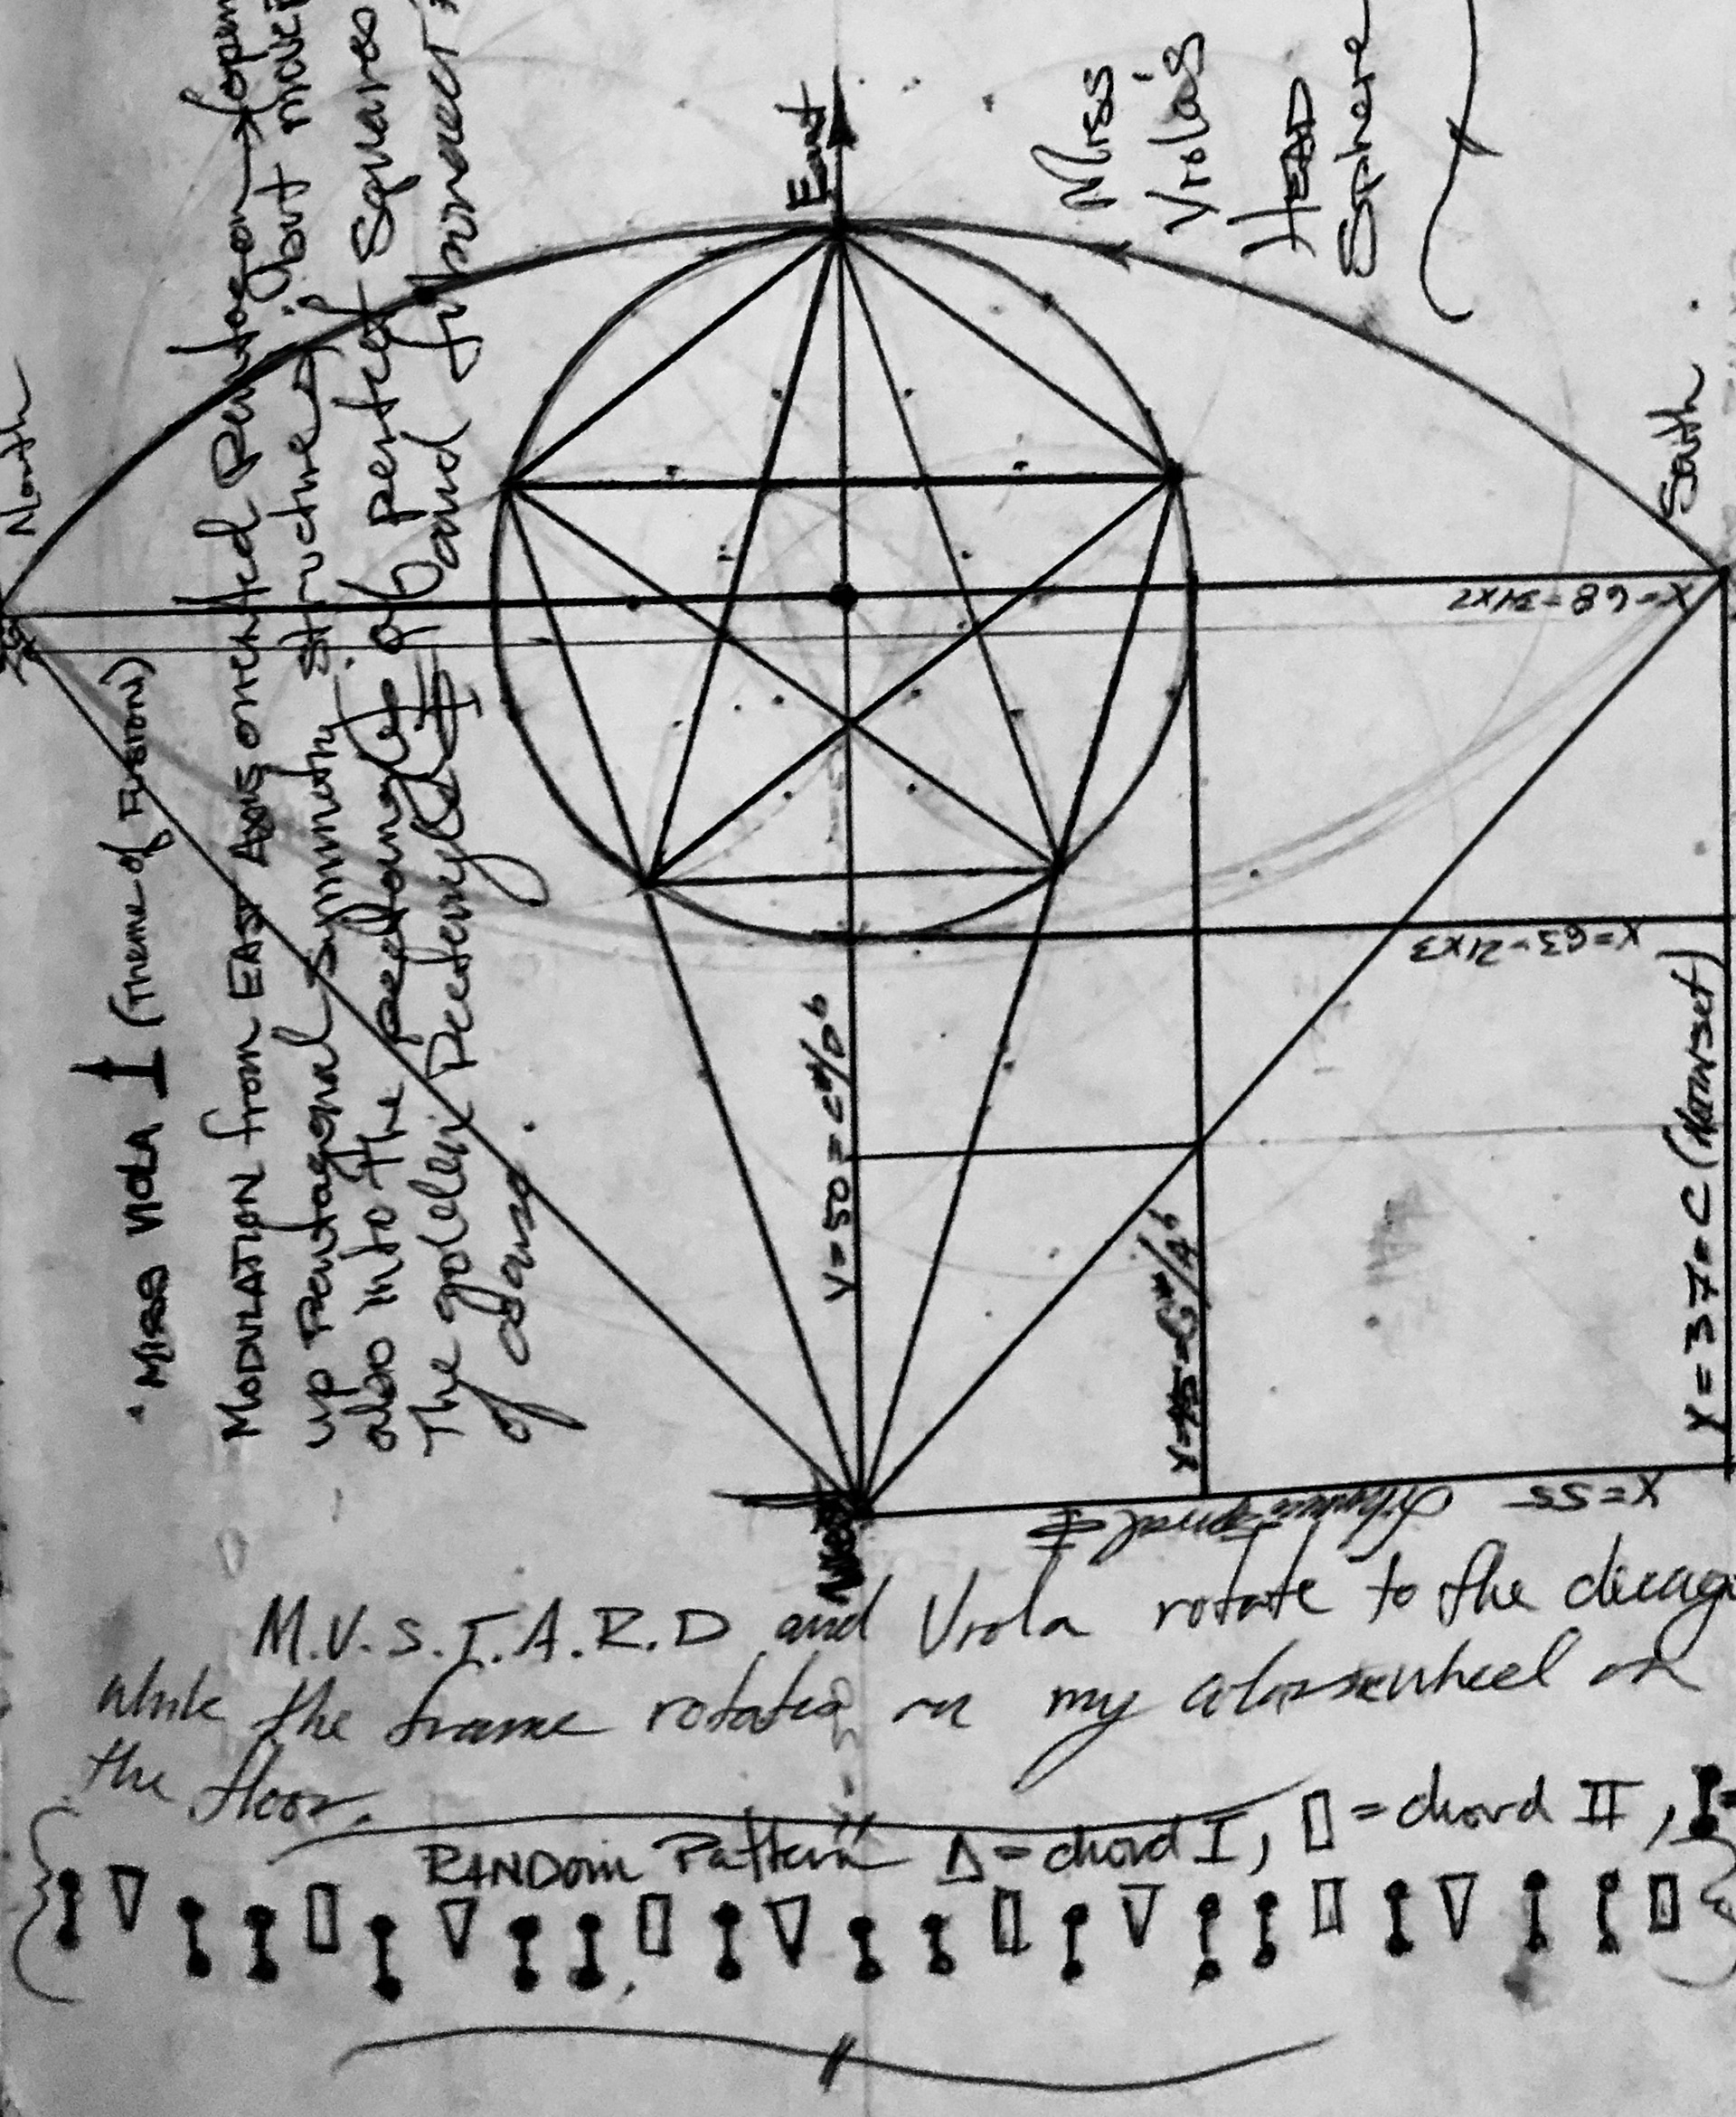 North
East
South
Miss
Viola's
HEAD
Sphere
• MISS VIOLA (Theme of FUSION)
MODULATION from EAST AXIS oriented Pentagon → open
up Pentagonal symmetry structure; but move
also into the of perfect Squares
The golden and
of danse.
X=68=34X2
X=63=21X3
Y=50=C#/Db
Y=75=G#/Ab
Y=37=C (Nonset)
X=55
M.V.S.I.A.R.D and Viola rotate to the
while the frame rotates on my on
the floor.
RANDOM Pattern Δ=chord I, ▯=chord II,